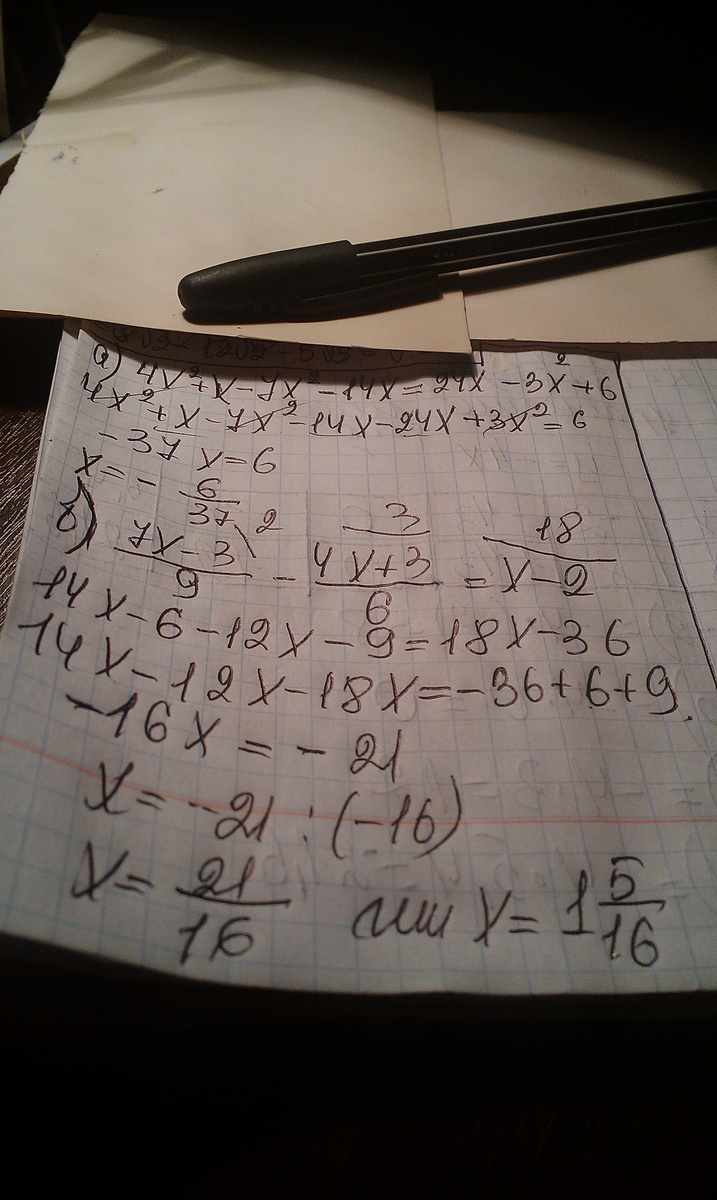 а) 4x² + x - 7x² - 14x = 24x - 3x² + 6
4x² + x - 7x² - 14x - 24x + 3x² = 6
- 37 x = 6
x = - 6/37
б) (7x - 3)/9 \2 - (4x + 3)/6 \3 = x - 2 \18
14x - 6 - 12x - 9 = 18x - 36
14x - 12x - 18x = -36 + 6 + 9.
-16x = - 21
x = -21 : (-16)
x = 21/16 или x = 1 5/16